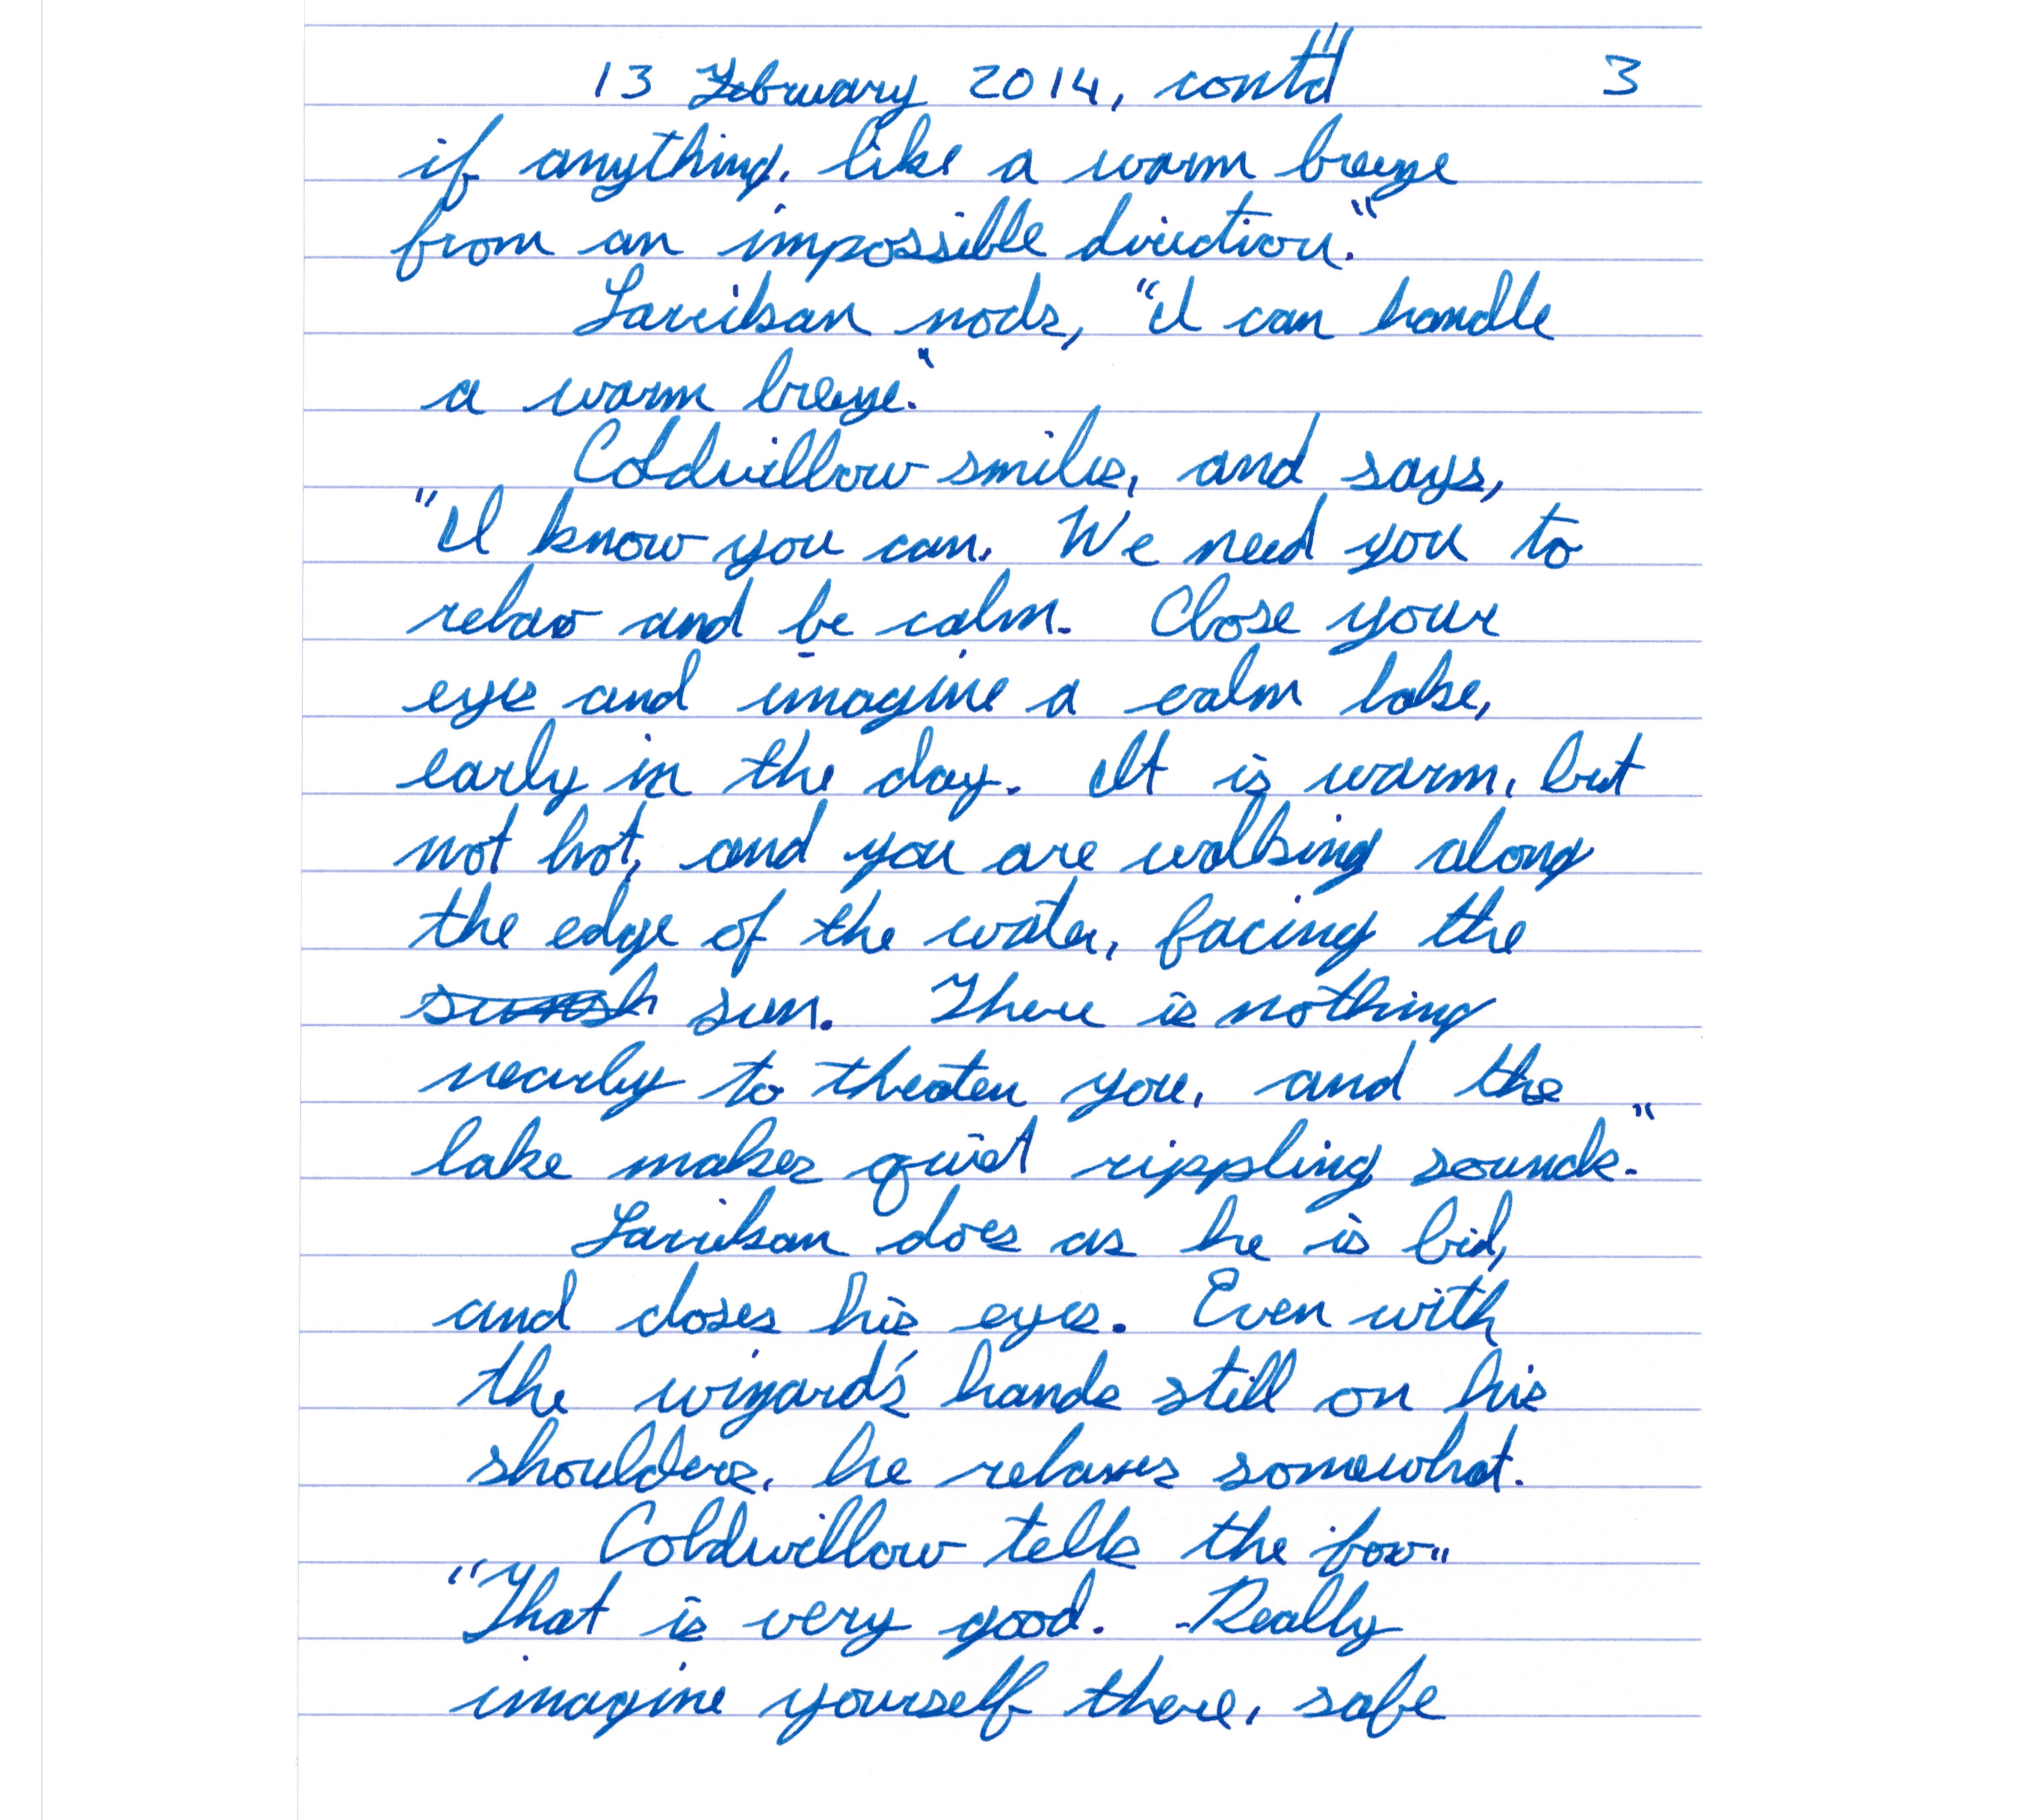 13 February 2014, cont'd 3
if anything, like a warm breeze
from an impossible direction."
Lariksan nods, "I can handle
a warm breeze."
Coldwillow smiles, and says,
"I know you can. We need you to
relax and be calm. Close your
eyes and imagine a calm lake,
early in the day. It is warm, but
not hot, and you are walking along
the edge of the water, facing the
sun. There is nothing
nearby to theaten you, and the
lake makes quiet rippling sounds."
Lariksan does as he is bid,
and closes his eyes. Even with
the wizard's hands still on his
shoulders, he relaxes somewhat.
Coldwillow tells the
"That is very good. Really
imagine yourself there, safe